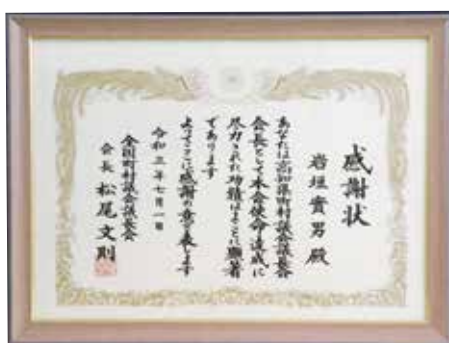 感謝状
岩垣實男殿
あなたは高知県町村議会議長会
会長として本会使命達成に
尽力された功績はまことに顕著
であります
よってここに感謝の意を表します
令和三年七月一日
全国町村議会議長会
会長松尾文則